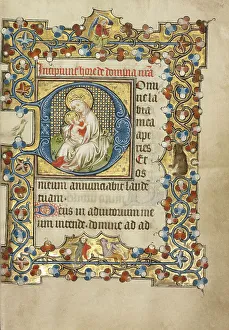 Incipiunt hore de domina nra
Domi
ne la
bia
mea
apri
es
Et os
meum annunciabit laude
tuam. Deus in adiutorium me
um intende. domine ad ad